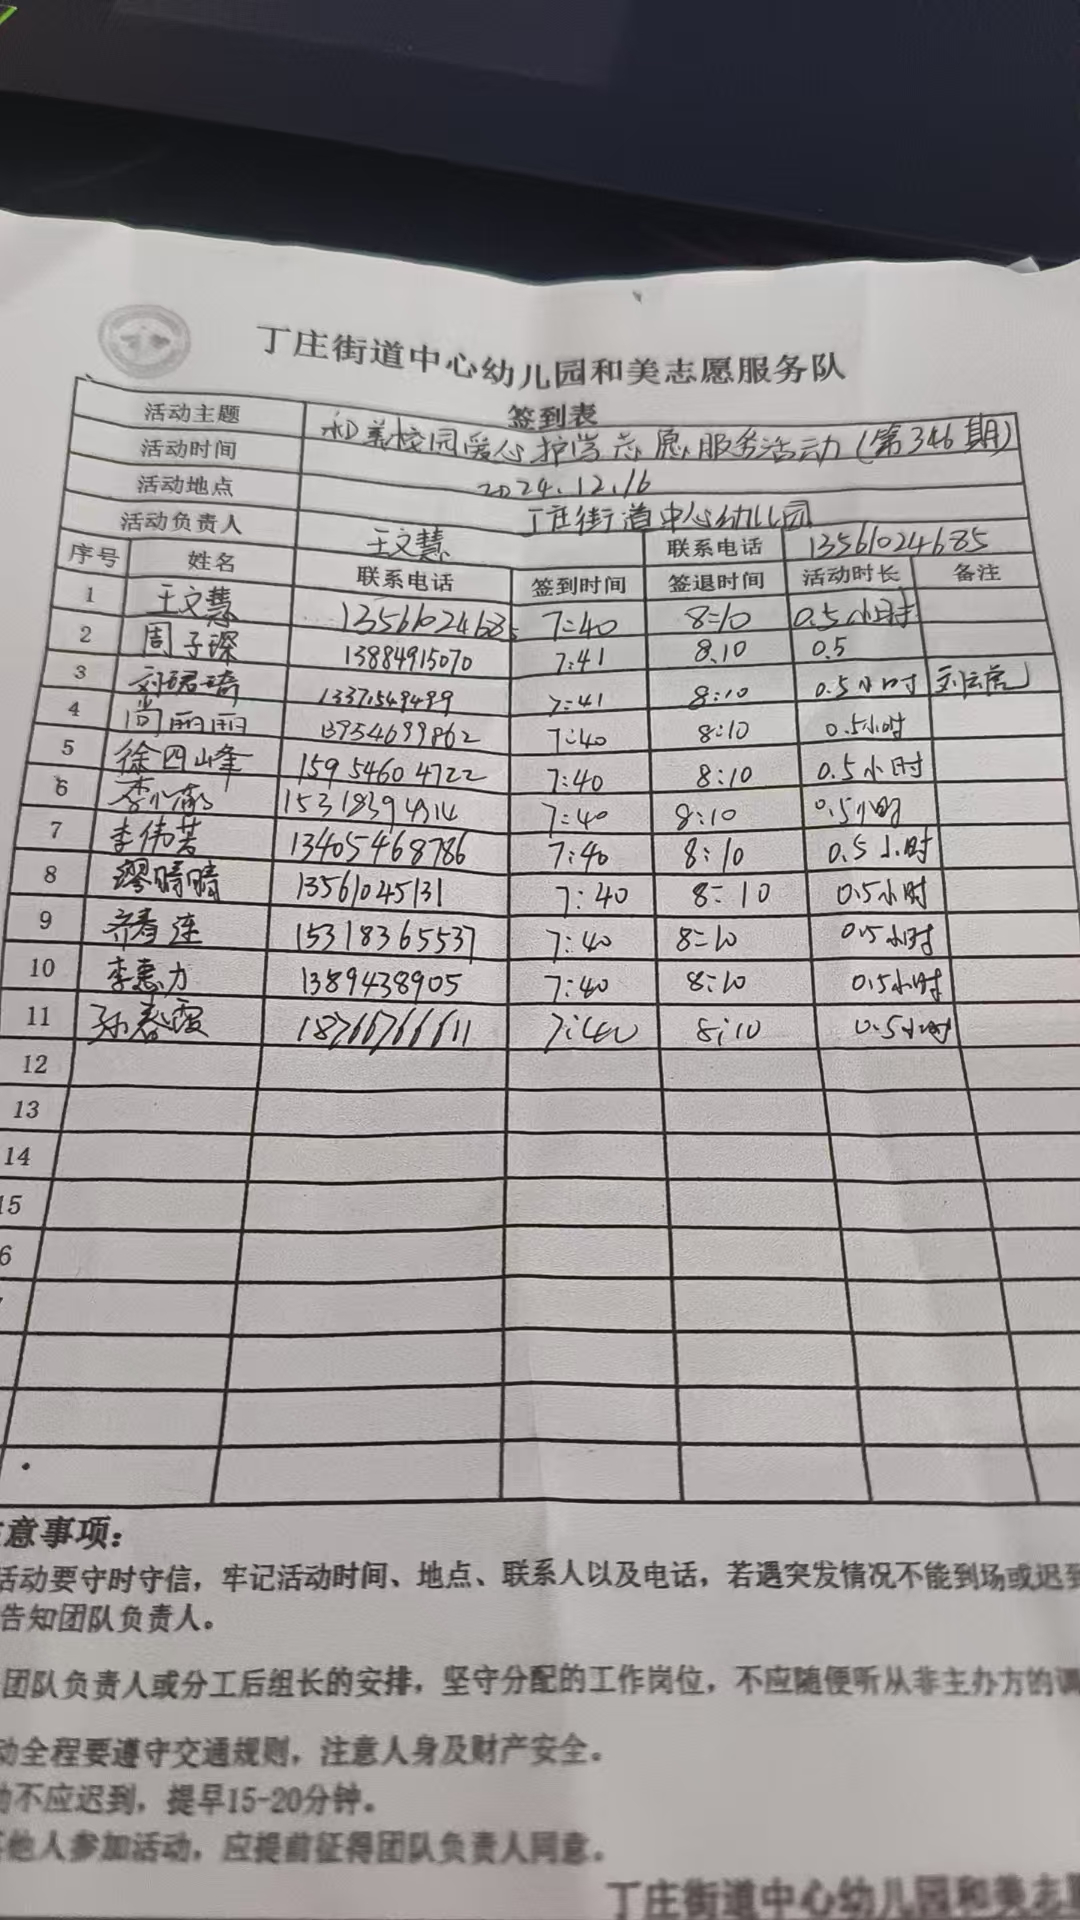 丁庄街道中心幼儿园和美志愿服务队
签到表
活动主题 和美校园爱心护学志愿服务活动(第346期)
活动时间 2024.12.16
活动地点 丁庄街道中心幼儿园
活动负责人 王文慧 联系电话 13561024685
序号 姓名 联系电话 签到时间 签退时间 活动时长 备注
1 王文慧 13561024685 7:40 8:10 0.5小时
2 周子琛 13884915070 7:41 8.10 0.5
3 刘珺琦 13371549499 7:41 8:10 0.5小时 刘云虎
4 尚丽丽 13954699862 7:40 8:10 0.5小时
5 徐四峰 15954604722 7:40 8:10 0.5小时
6 李 15318394914 7:40 8:10 0.5小时
7 李伟芳 13405468786 7:40 8:10 0.5小时
8 缪晴晴 13561045131 7:40 8:10 0.5小时
9 齐春连 15318365537 7:40 8:10 0.5小时
10 李惠力 1389438905 7:40 8:10 0.5小时
11 孙春霞 18766766611 7:40 8:10 0.5小时
12
13
14
15
6
意事项:
活动要守时守信，牢记活动时间、地点、联系人以及电话，若遇突发情况不能到场或迟到
告知团队负责人。
团队负责人或分工后组长的安排，坚守分配的工作岗位，不应随便听从非主办方的调
动全程要遵守交通规则，注意人身及财产安全。
动不应迟到，提早15-20分钟。
其他人参加活动，应提前征得团队负责人同意。
丁庄街道中心幼儿园和美志愿